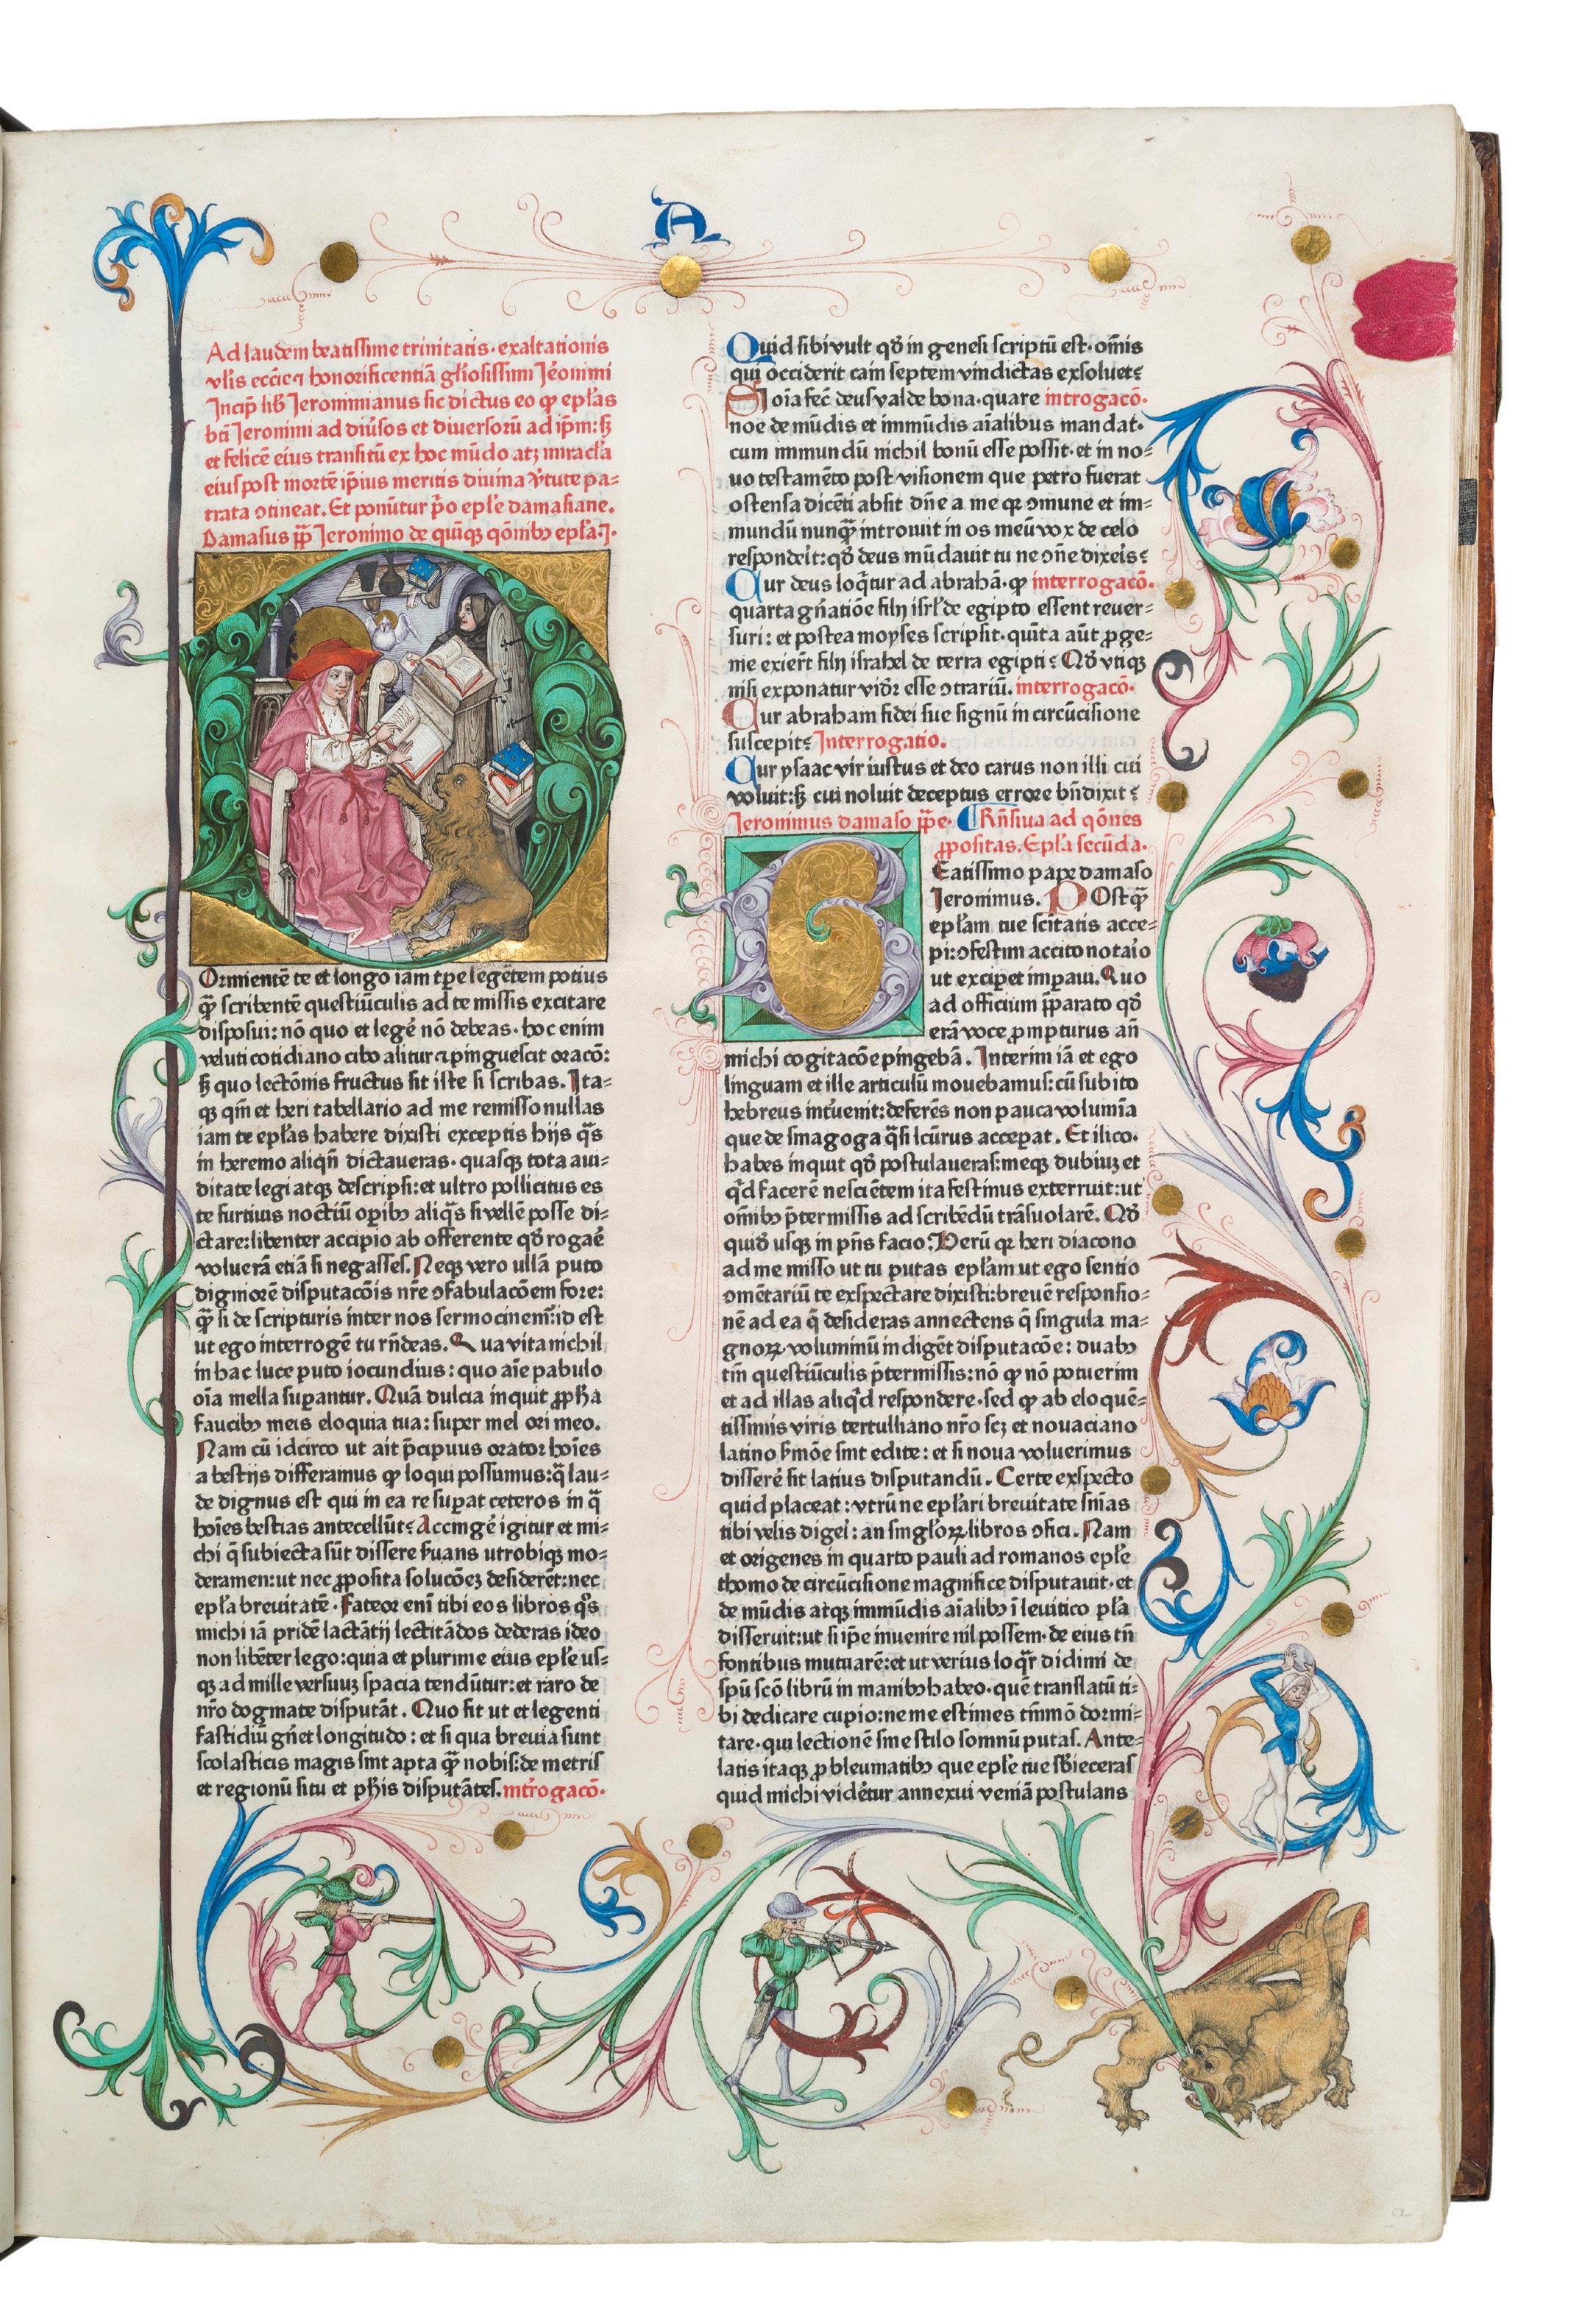 A
Ad laudem beatissime trinitatis· exaltationis
vl̄is ecc̄ie ⁊ honorificentiā gl̄iosissimi Je̅onimi
Incip̄ lib̄ Ieronimianus sic dictus eo ꝙ ep̄las
bt̄i Ieronimi ad diu̓sos et diuersorū ad ip̄m: sꝫ
et felicē eius transitū ex hoc mūdo atꝫ miracl̓a
eius post mortē ip̄ius meritis diuina v̓tute pa⸗
trata ↄtineat. Et ponūtur p̓o ep̄le damasiane.
Damasus pp̄ Ieronimo de quīqꝫ q̄onibꝰ ep̄la·j·
Ormientē te et longo iam tp̄e legētem potius
qꝫ̄ scribentē questiūculis ad te missis excitare
disposui: nō quo et legē nō debeas· hoc enim
veluti cotidiano cibo alitur ⁊ pinguescit oracō:
sꝫ quo lectōnis fructus sit iste si scribas. Ita⸗
qꝫ qm̄ et heri tabellario ad me remisso nullas
iam te ep̄las habere dixisti exceptis hijs q̄s
in heremo aliqn̄ dictaueras· quasqꝫ tota aui⸗
ditate legi atqꝫ descripsi: et ultro pollicitus es
te furtiuis noctiū oꝑibꝰ aliq̄s si vellē posse di⸗
ctare: libenter accipio ab offerente qď rogaē
voluerā etiā si negasses. Neqꝫ vero ullā puto
digniorē disputacōis nr̄e ↄfabulacōem fore:
qꝫ̄ si de scripturis inter nos sermocinem̄: id est
ut ego interrogē tu rn̄deas. Qua vita nichil
in hac luce puto iocundius: quo aīe pabulo
oīa mella suꝑantur. Quā dulcia inquit ꝓph̄a
faucibꝰ meis eloquia tua: super mel ori meo.
Nam cū idcirco ut ait p̄cipuus orator hoīes
a bestijs differamus ꝙ loqui possumus: q̄ lau⸗
de dignus est qui in ea re suꝑat ceteros in q̄
hoīes bestias antecellūt? Accingē igitur et mi⸗
chi q̄ subiecta sūt dissere s̓uans utrobiqꝫ mo⸗
deramen: ut nec ꝓposita solucōeꝫ desiderēt: nec
ep̄la breuitatē· Fateor enī tibi eos libros q̄s
michi iā pridē lactātij lectitādos dederas ideo
non libēter lego: quia et plurime eius ep̄le us⸗
qꝫ ad mille versuuꝫ spacia tendūtur: et raro de
nr̄o dogmate disputāt. Quo fit ut et legenti
fastidiū gn̄et longitudo: et si qua breuia sunt
scolasticis magis sint apta qꝫ̄ nobis: de metris
et regionū situ et ph̄is disputātes. int̓rogacō·
Quid sibi vult qď in genesi scriptū est· om̄is
qui occiderit cain septem vindictas exsoluet?
Si oīa fec̄ deus valde bona· quare introgacō·
noe de mūdis et immūdis aīalibus mandat·
cum immundū nichil bonū esse possit· et in no⸗
uo testamēto post visionem que petro fuerat
ostensa dicēti absit dn̄e a me qꝛ ↄmune et im⸗
mundū nunqꝫ̄ introuit in os meū vox de celo
respondeīt: qď deus mūdauit tu ne ↄn̄e dixeis?
Cur deus loq̄tur ad abrahā· ꝙ interrogacō·
quarta gn̄atiōe filij isrl̓ de egipto essent reuer⸗
suri: et postea moyses scripsit· quīta aūt ꝓge⸗
nie exiert̄ filij israhel de terra egipti? Qď vtiqꝫ
nisi exponatur videt̄ esse ↄtrariū. interrogacō·
Cur abraham fidei sue signū in circūcisione
suscepit? Interrogatio.
Cur ysaac vir iustus et deo carus non illi cui
voluit: sꝫ cui noluit deceptus errore bn̄dixit?
Jeronimus damaso pp̄e· Rn̄siua ad q̄ones
ꝓpositas. Ep̄la secūda·
Eatissimo pape damaso
Jeronimus. POstqꝫ̄
ep̄lam tue sc̄itatis acce⸗
pi: ↄfestim accito notaīo
ut exciꝑet imꝑaui. Quo
ad officium p̄parato qď
erā voce ꝓmpturus an̄
michi cogitacōe pingebā. Interim iā et ego
linguam et ille articulū mouebamus: cū subito
hebreus int̓uenit: deferēs non pauca volumīa
que de sinagoga q̄si lc̄urus acceꝑat. Et ilico·
habes inquit qď postulaueras: meqꝫ dubiuꝫ et
q̄d facerē nesciētem ita festinus exterruit: ut
om̄ibꝰ p̄termissis ad scribēdū trāsuolarē. Qď
quidē usqꝫ in pn̄s facio. Verū qꝛ heri diacono
ad me misso ut tu putas ep̄lam ut ego sentio
ↄmētariū te exspectare dixisti: breuē responsio⸗
nē ad ea q̄ desideras annectens q̄ singula ma⸗
gnoꝝ voluminū indigēt disputacōe: duabꝰ
tm̄ questiūculis p̄termissis: nō ꝙ nō potuerim
et ad illas aliq̄d respondere· sed ꝙ ab eloquē⸗
tissimis viris tertulliano nr̄o scꝫ et nouaciano
latino s̓mōe sint edite: et si noua voluerimus
disserē sit latius disputandū. Certe exspecto
quid placeat: vtrū ne ep̄lari breuitate sn̄ias
tibi velis digeī: an singl̓oꝝ libros ↄfici. Nam
et origenes in quarto pauli ad romanos ep̄le
thomo de circūcisione magnifice disputauit· et
de mūdis atqꝫ immūdis aīalibꝰ ī leuitico pl̄a
disseruit: ut si ip̄e inuenire nil possem· de eius tn̄
fontibus mutuarē: et ut verius loq̄r didimi de
spū scō librū in manibꝰ habeo· quē translatū ti⸗
bi dedicare cupio: ne me estimes tm̄mō dormi⸗
tare· qui lectionē sine stilo somnū putas. Ante⸗
latis itaqꝫ ꝓbleumatibꝰ que ep̄le tue sb̄ieceras
quid michi vidētur annexui veniā postulans